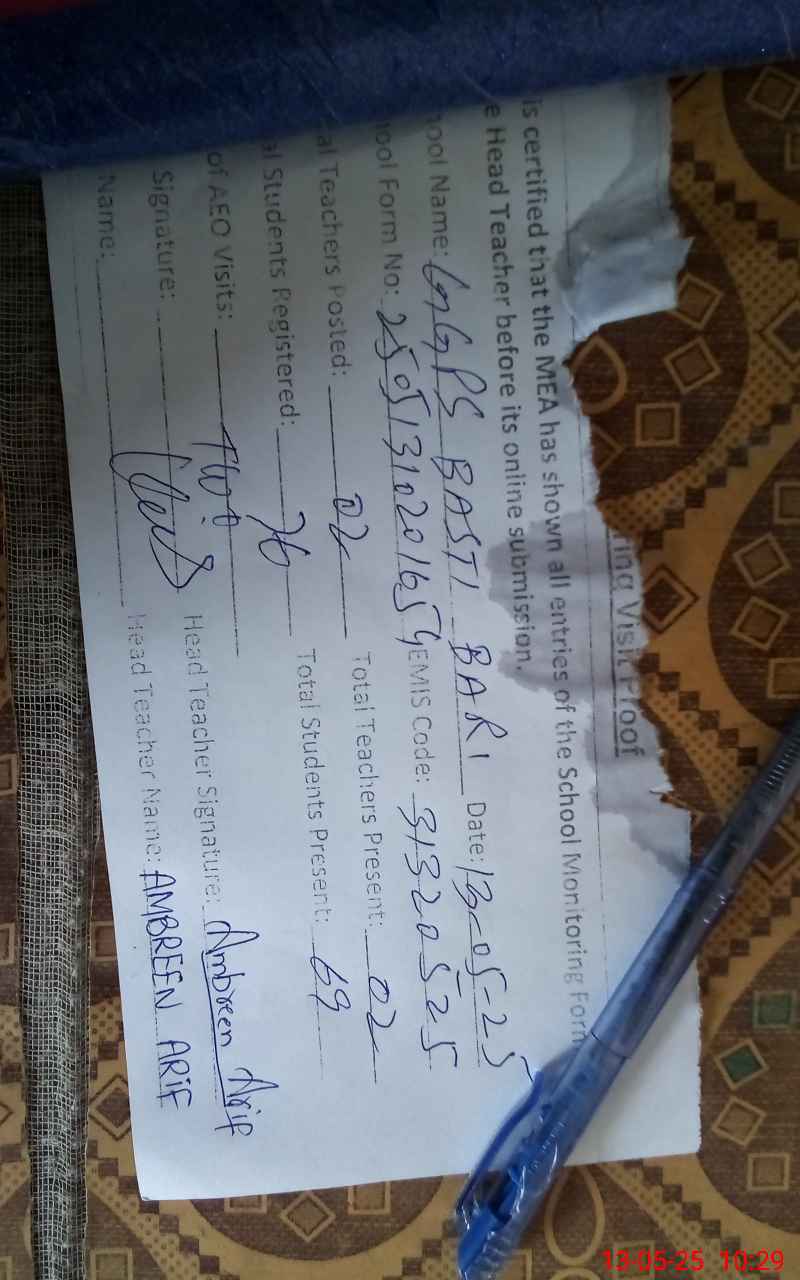 ring Visit Proof
is certified that the MEA has shown all entries of the School Monitoring Form
e Head Teacher before its online submission.
ool Name: GGPS BASTI BARI Date: 13-05-25
ool Form No: 25051310201654 EMIS Code: 31320525
al Teachers Posted: 02 Total Teachers Present: 02
al Students Registered: 76 Total Students Present: 69
of AEO Visits: two
Signature: Head Teacher Signature: Ambreen Arif
Name: Head Teacher Name: AMBREEN ARIF
13-05-25 10:29